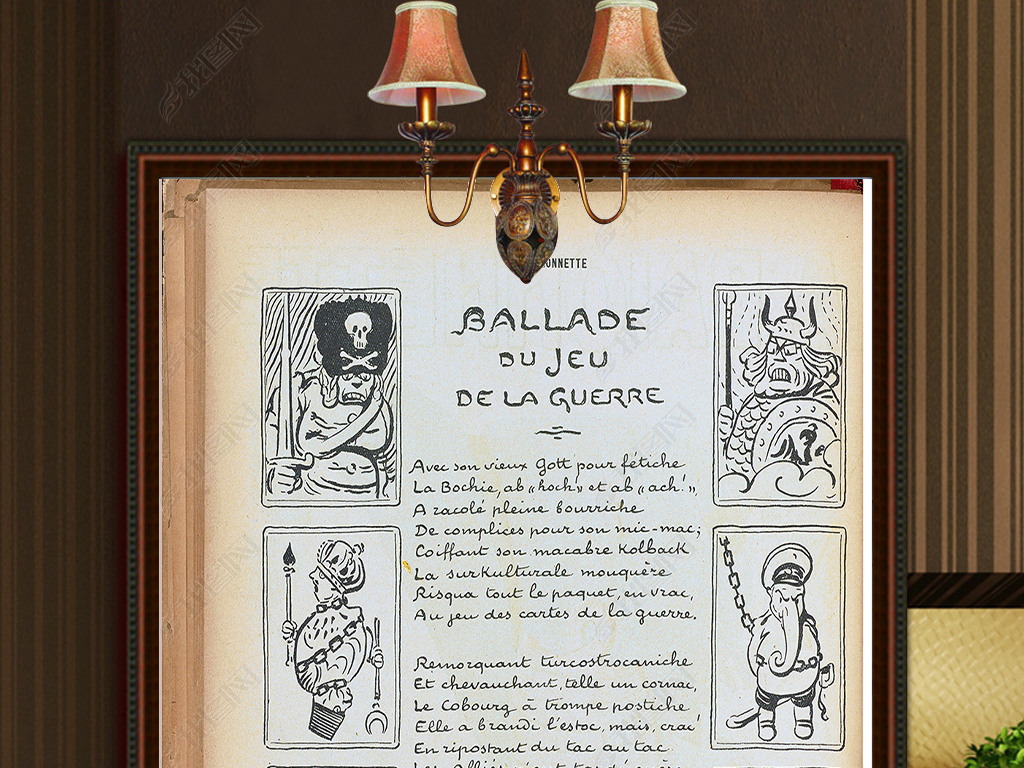 BALLADE
DU JEU
DE LA GUERRE
Avec son vieux Gott pour fétiche
La Bochie, ab "hoch" et ab "ach!",
A racolé pleine bourriche
De complices pour son mic-mac;
Coiffant son macabre Kolback
La surkulturale mouquère
Risqua tout le paquet, en vrac,
Au jeu des cartes de la guerre.
Remorquant turcostrocaniche
Et chevauchant, telle un cornac,
Le Cobourg à trompe postiche
Elle a brandi l'estoc, mais, crac!
En ripostant du tac au tac